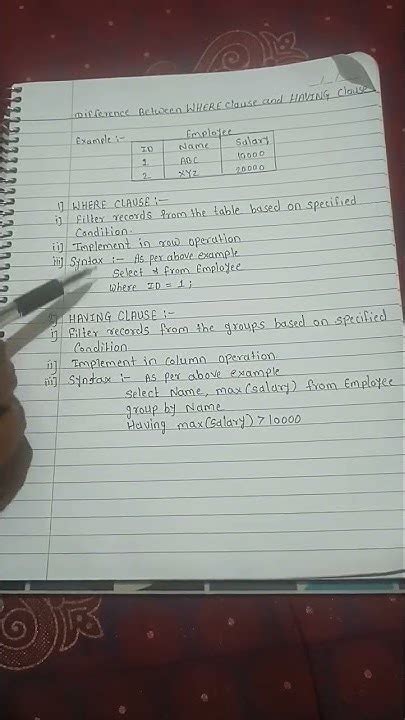 Difference Between WHERE Clause and HAVING Clause
Example :- Employee
ID Name Salary
1 ABC 10000
2 XYZ 20000
1) WHERE CLAUSE :-
i) Filter records from the table based on specified
Condition.
ii) Implement in row operation
iii) Syntax :- As per above example
Select * from Employee
Where ID = 1;
HAVING CLAUSE :-
i) Filter records from the groups based on specified
Condition
ii) Implement in column operation
iii) Syntax :- As per above example
Select Name, max(salary) from Employee
group by Name
Having max(salary) > 10000